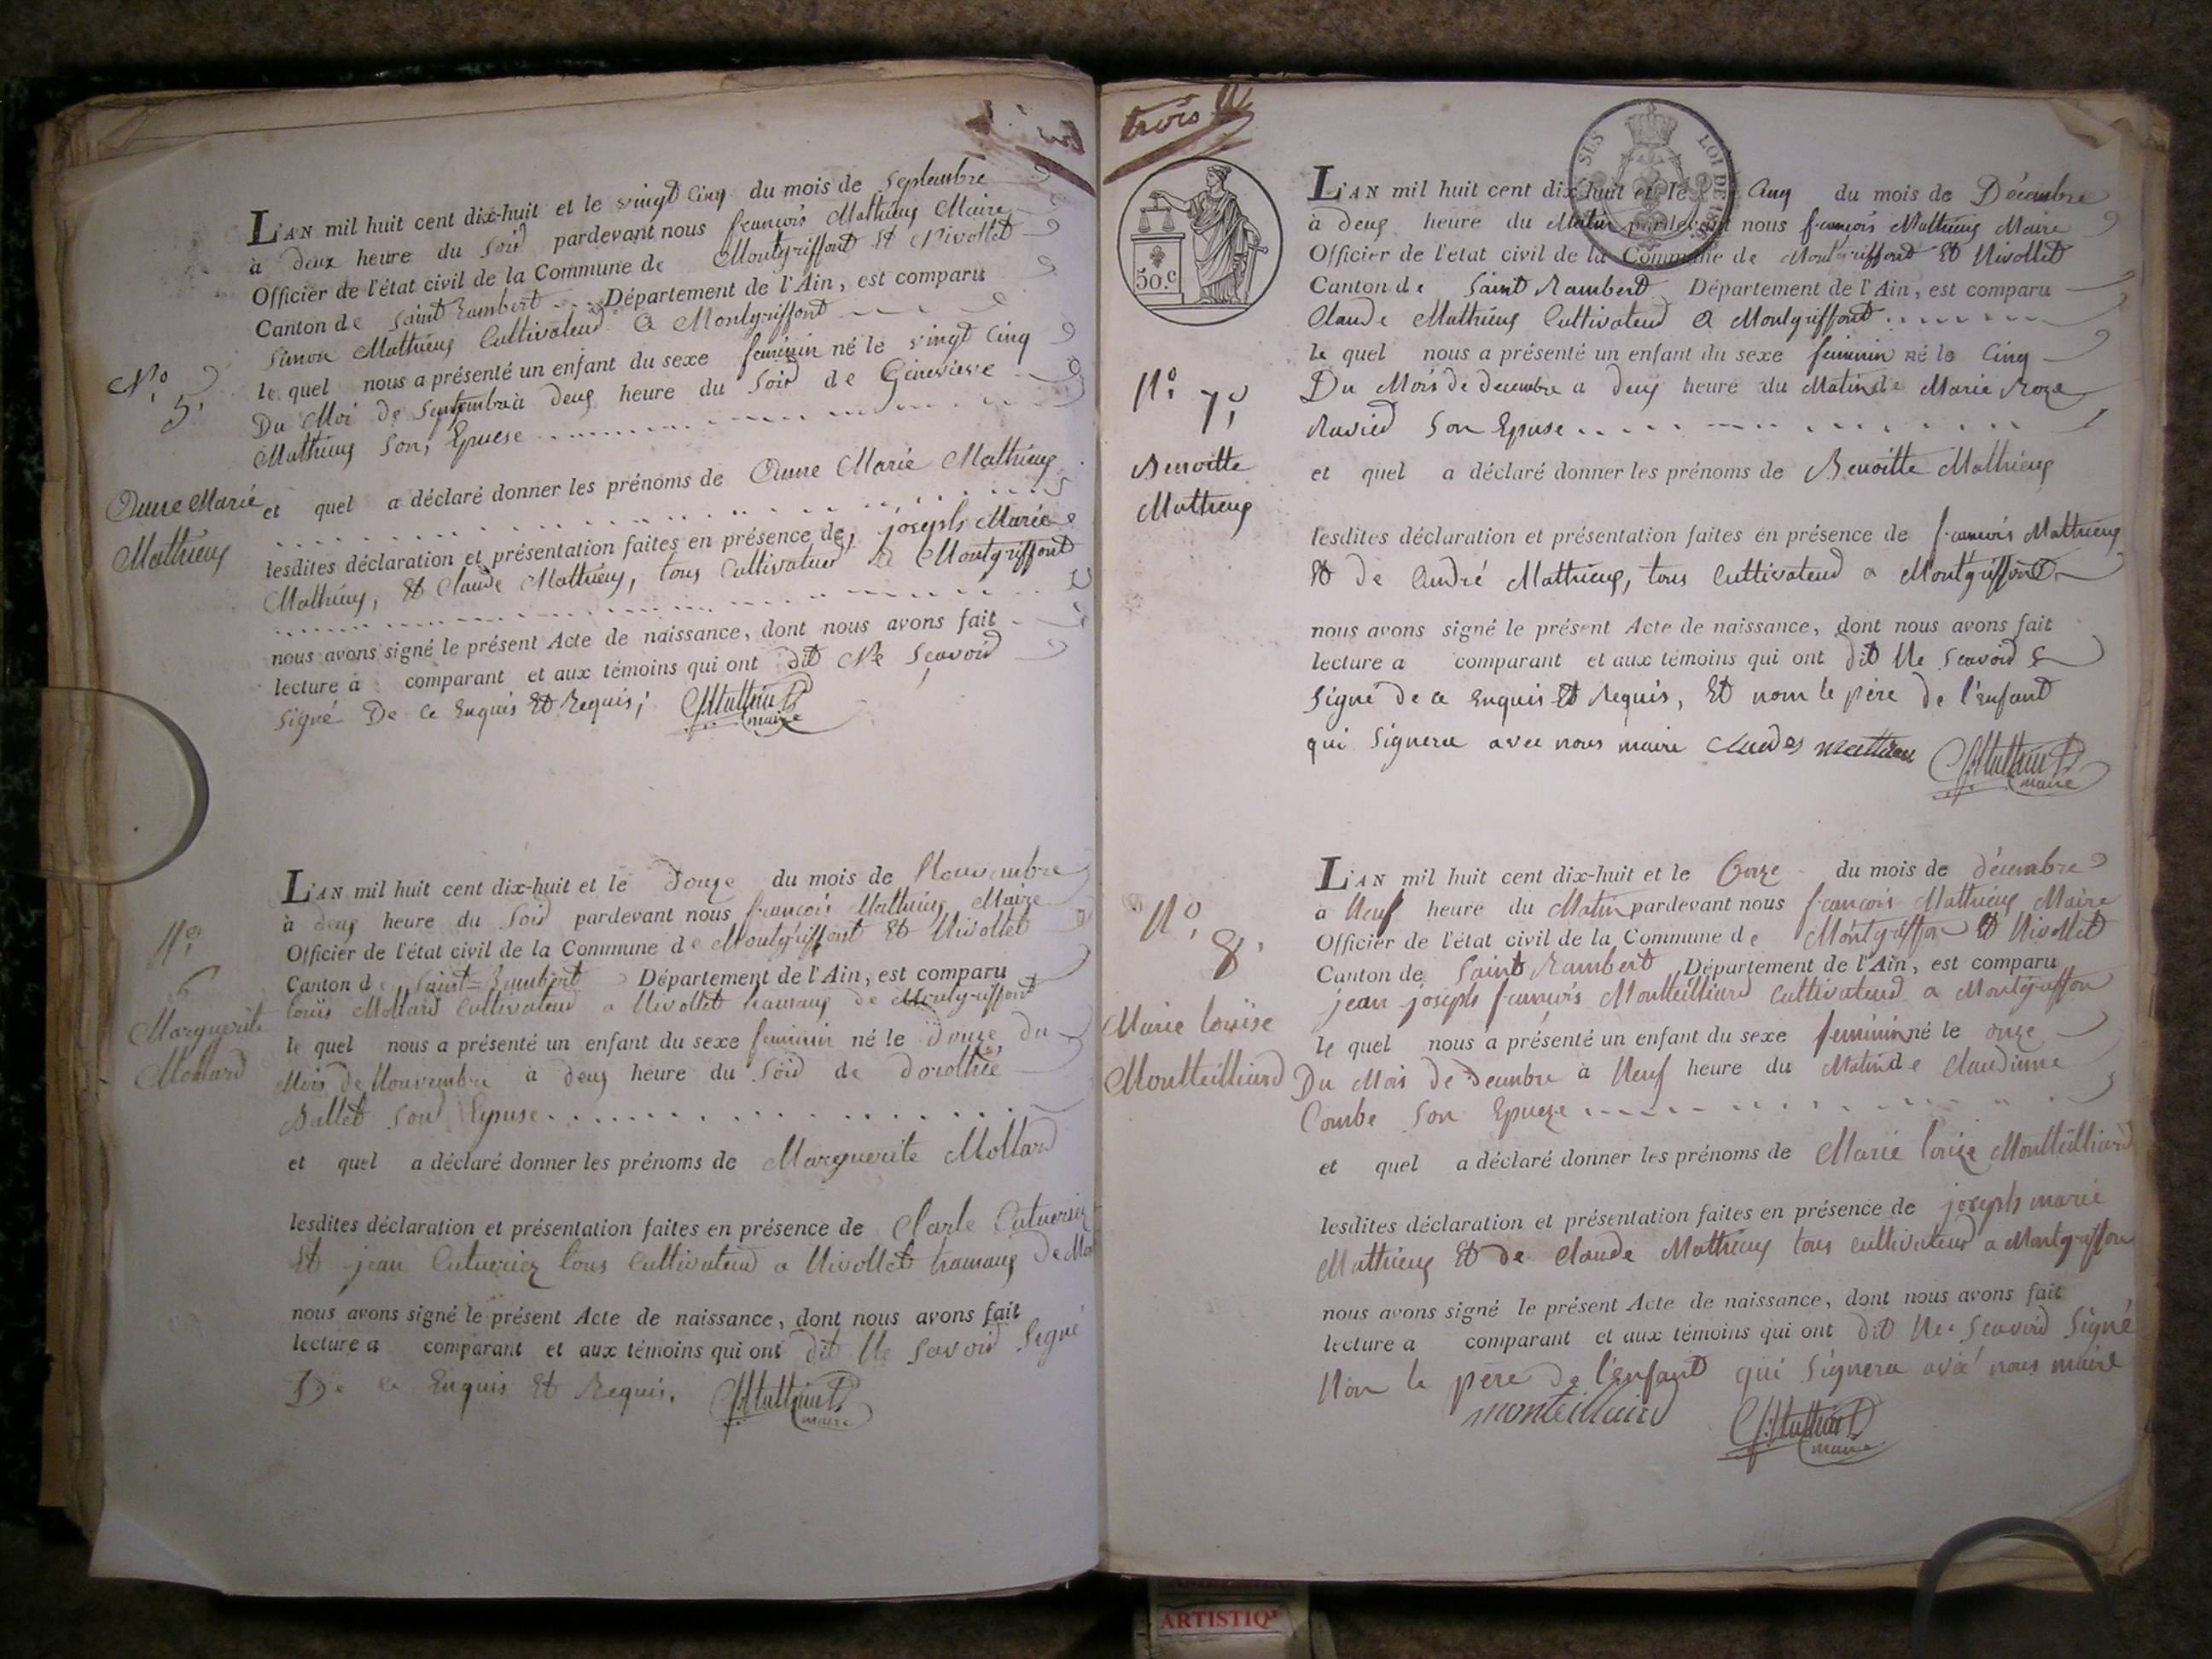 L'AN mil huit cent dix-huit et le vingt Cinq du mois de Septembre
à deux heure du Soir pardevant nous françois Mathieux Maire
Officier de l'état civil de la Commune de Montgriffont Et Nivollet
Canton de Saint Rambert Département de l'Ain, est comparu
Simon Mathieux Cultivateur a Montgriffont
le quel nous a présenté un enfant du sexe feminin né le vingt Cinq
Du Moi de Septembre à deux heure du Soir de Genevieve
Mathieux Son Epuese
N.º 5.
Anne Marie
Mathieux
et quel a déclaré donner les prénoms de Anne Marie Mathieux
lesdites déclaration et présentation faites en présence de joseph Marie
Mathieux, Et Claude Mathieux, tous Cultivateur a Montgriffont
nous avons signé le présent Acte de naissance, dont nous avons fait
lecture à comparant et aux témoins qui ont dit Ne Sçavoir
Signé De ce Enquis Et Requis;
maire
L'AN mil huit cent dix-huit et le Douze du mois de Nouvembre
à deux heure du Soir pardevant nous françois Mathieux Maire
Officier de l'état civil de la Commune de Montgriffont Et Nivollet
Canton de Saint=Rambert Département de l'Ain, est comparu
louis Mollard Cultivateur a Nivollet hamaux de Montgriffont
le quel nous a présenté un enfant du sexe feminin né le Douze du
Mois De Nouvembre à deux heure du Soir de dorothée
Ballet Son Epuse
N.º 6
Marguerite
Mollard
et quel a déclaré donner les prénoms de Marguerite Mollard
lesdites déclaration et présentation faites en présence de Charle
Et jean tous Cultivateur a Nivollet hamaux De
nous avons signé le présent Acte de naissance, dont nous avons fait
lecture a comparant et aux témoins qui ont dit Ne Savoir Signé
De ce Enquis Et Requis.
maire
trois
50.c
SUS LOI DE 18
L'AN mil huit cent dix-huit et le Cinq du mois de Décembre
à deux heure du Matin pardevant nous françois Mathieux Maire
Officier de l'état civil de la Commune de Montgriffont Et Nivollet
Canton de Saint Rambert Département de l'Ain, est comparu
Claude Mathieux Cultivateur a Montgriffont
le quel nous a présenté un enfant du sexe feminin né le Cinq
Du Mois de decembre a deux heure du Matin de Marie Roze
Ravier Son Epuse
N.º 7.
Benoitte
Mathieux
et quel a déclaré donner les prénoms de Benoitte Mathieux
lesdites déclaration et présentation faites en présence de françois Mathieux
Et de André Mathieux, tous Cultivateur a Montgriffont
nous avons signé le présent Acte de naissance, dont nous avons fait
lecture a comparant et aux témoins qui ont dit Ne Scavoir
Signé de ce Enquis Et Requis, Et nom le père de l'Enfant
qui Signera avec nous maire
maire
L'AN mil huit cent dix-huit et le Onze du mois de décembre
à Neuf heure du Matin pardevant nous françois Mathieux Maire
Officier de l'état civil de la Commune de Montgriffon Et Nivollet
Canton de Saint Rambert Département de l'Ain, est comparu
jean joseph françois Montteilliard Cultivateur a Montgriffon
le quel nous a présenté un enfant du sexe feminin né le onze
Du Mois De Decembre à Neuf heure du Matin de Claudinne
Combe Son Epueze
N.º 8.
Marie loüise
Montteilliard
et quel a déclaré donner les prénoms de Marie louize Montteilliard
lesdites déclaration et présentation faites en présence de joseph marie
Mathieux Et de Claude Mathieux tous cultivateur a Montgriffon
nous avons signé le présent Acte de naissance, dont nous avons fait
lecture a comparant et aux témoins qui ont dit Ne Scavoir Signé
Non le père De l'enfant qui Signera avec nous maire
monteilliard
maire
ARTISTIQ